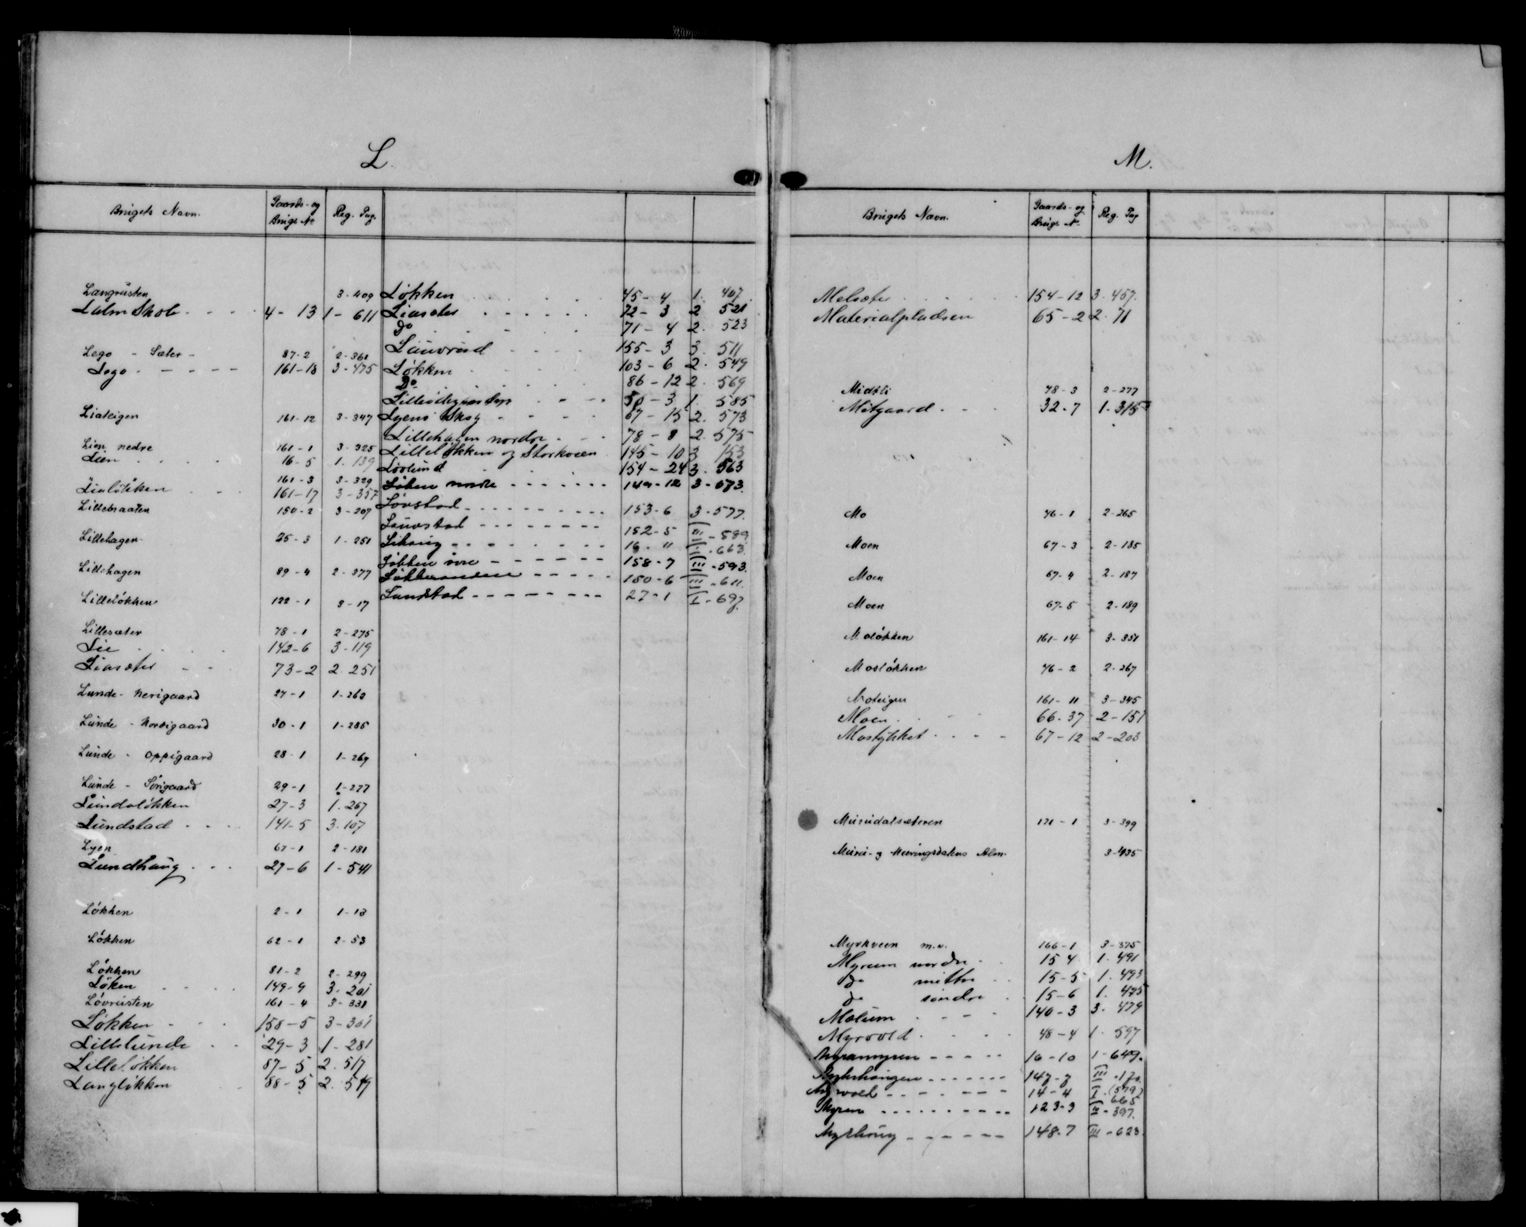 L.
Brugets Navn. Gaards- og Brugs No Reg. Pag.
Langrusten 3-409
Lalm Skole 4-13 1-611
Lego - Sæter - 87-2 2-361
Lego 161-18 3-475
Liateigen 161-12 3-347
Lien nedre 161-1 3-325
Lien 16-5 1-139
161-3 3-329
Lialökken 161-17 3-357
Lillebraaten 150-2 3-207
Lillehagen 25-3 1-251
Lillehagen 89-4 2-377
Lillelökken 122-1 3-17
Lillesæter 78-1 2-275
Lie 142-6 3-119
Liasæter 73-2 2 251
Lunde - Nerigaard 27-1 1-263
Lunde - Nordigaard 30-1 1-285
Lunde - Oppigaard 28-1 1-269
Lunde - Sörigaard 29-1 1-277
Lundelökken 27-3 1-267
Lundstad 141-5 3-107
Lyen 67-1 2-181
Lundhaug 27-6 1-541
Lökken 2-1 1-13
Lökken 62-1 2-53
Lökken 81-2 2-299
Löken 149-9 3-201
Lövrusten 161-4 3-331
Lökken 158-5 3-301
Lillelunde 29-3 1-281
Lillelökken 87-5 2.517
Langlökken 88-5 2.519
Lökken 45-4 1. 407
Liasæter 72-3 2 521
Do 71-4 2. 523
Lauvrud 155-3 3. 511
Lökken 103-6 2. 549
Do 86-12 2. 569
50-3 1. 585
Lyens Skog 67-15 2. 573
Lillehagen nordre 78-8 2. 575
Lillelökken og Storkveen 145-10 3 153
Lövlund 154-24 3. 563
Löken nordre 149-12 3-573
Lövstad 153-6 3-577
Lauvstad 152-5 III-589
16-11 I-663
Lökken 158-7 III-593
150-6 III-611
Lundstad 27-1 I-697
M.
Brugets Navn. Gaards- og Brugs No. Reg. Pag
154-12 3-457
Materialpladsen 65-2 2-71
Midtli 78-3 2-277
Mitgaard 32-7 1-315
Mo 46-1 2-265
Moen 67-3 2-185
Moen 67-4 2-187
Moen 67-5 2-189
Molökken 161-14 3-351
Molökken 46-2 2-267
Moteigen 161-11 3-345
Moen 66-37 2-151
Mostykket 67-12 2-203
Murudalsæteren 171-1 3-399
Muru- og Kværingsdalens Alm. 3-435
Myrkveen m.v. 166-1 3-375
Myrum nordre 15 4 1. 491
Do mittre 15-5 1. 493
Do söndre 15-6 1. 495
Molum 140-3 3. 479
Myrvold 48-4 1-597
Myranmyren 16-10 1-649
Myrhaugen 147-7 III-170
Myrvold 14-4 I (579) 665
Myren 123-3 II-397
Myrhaug 148-7 III-623